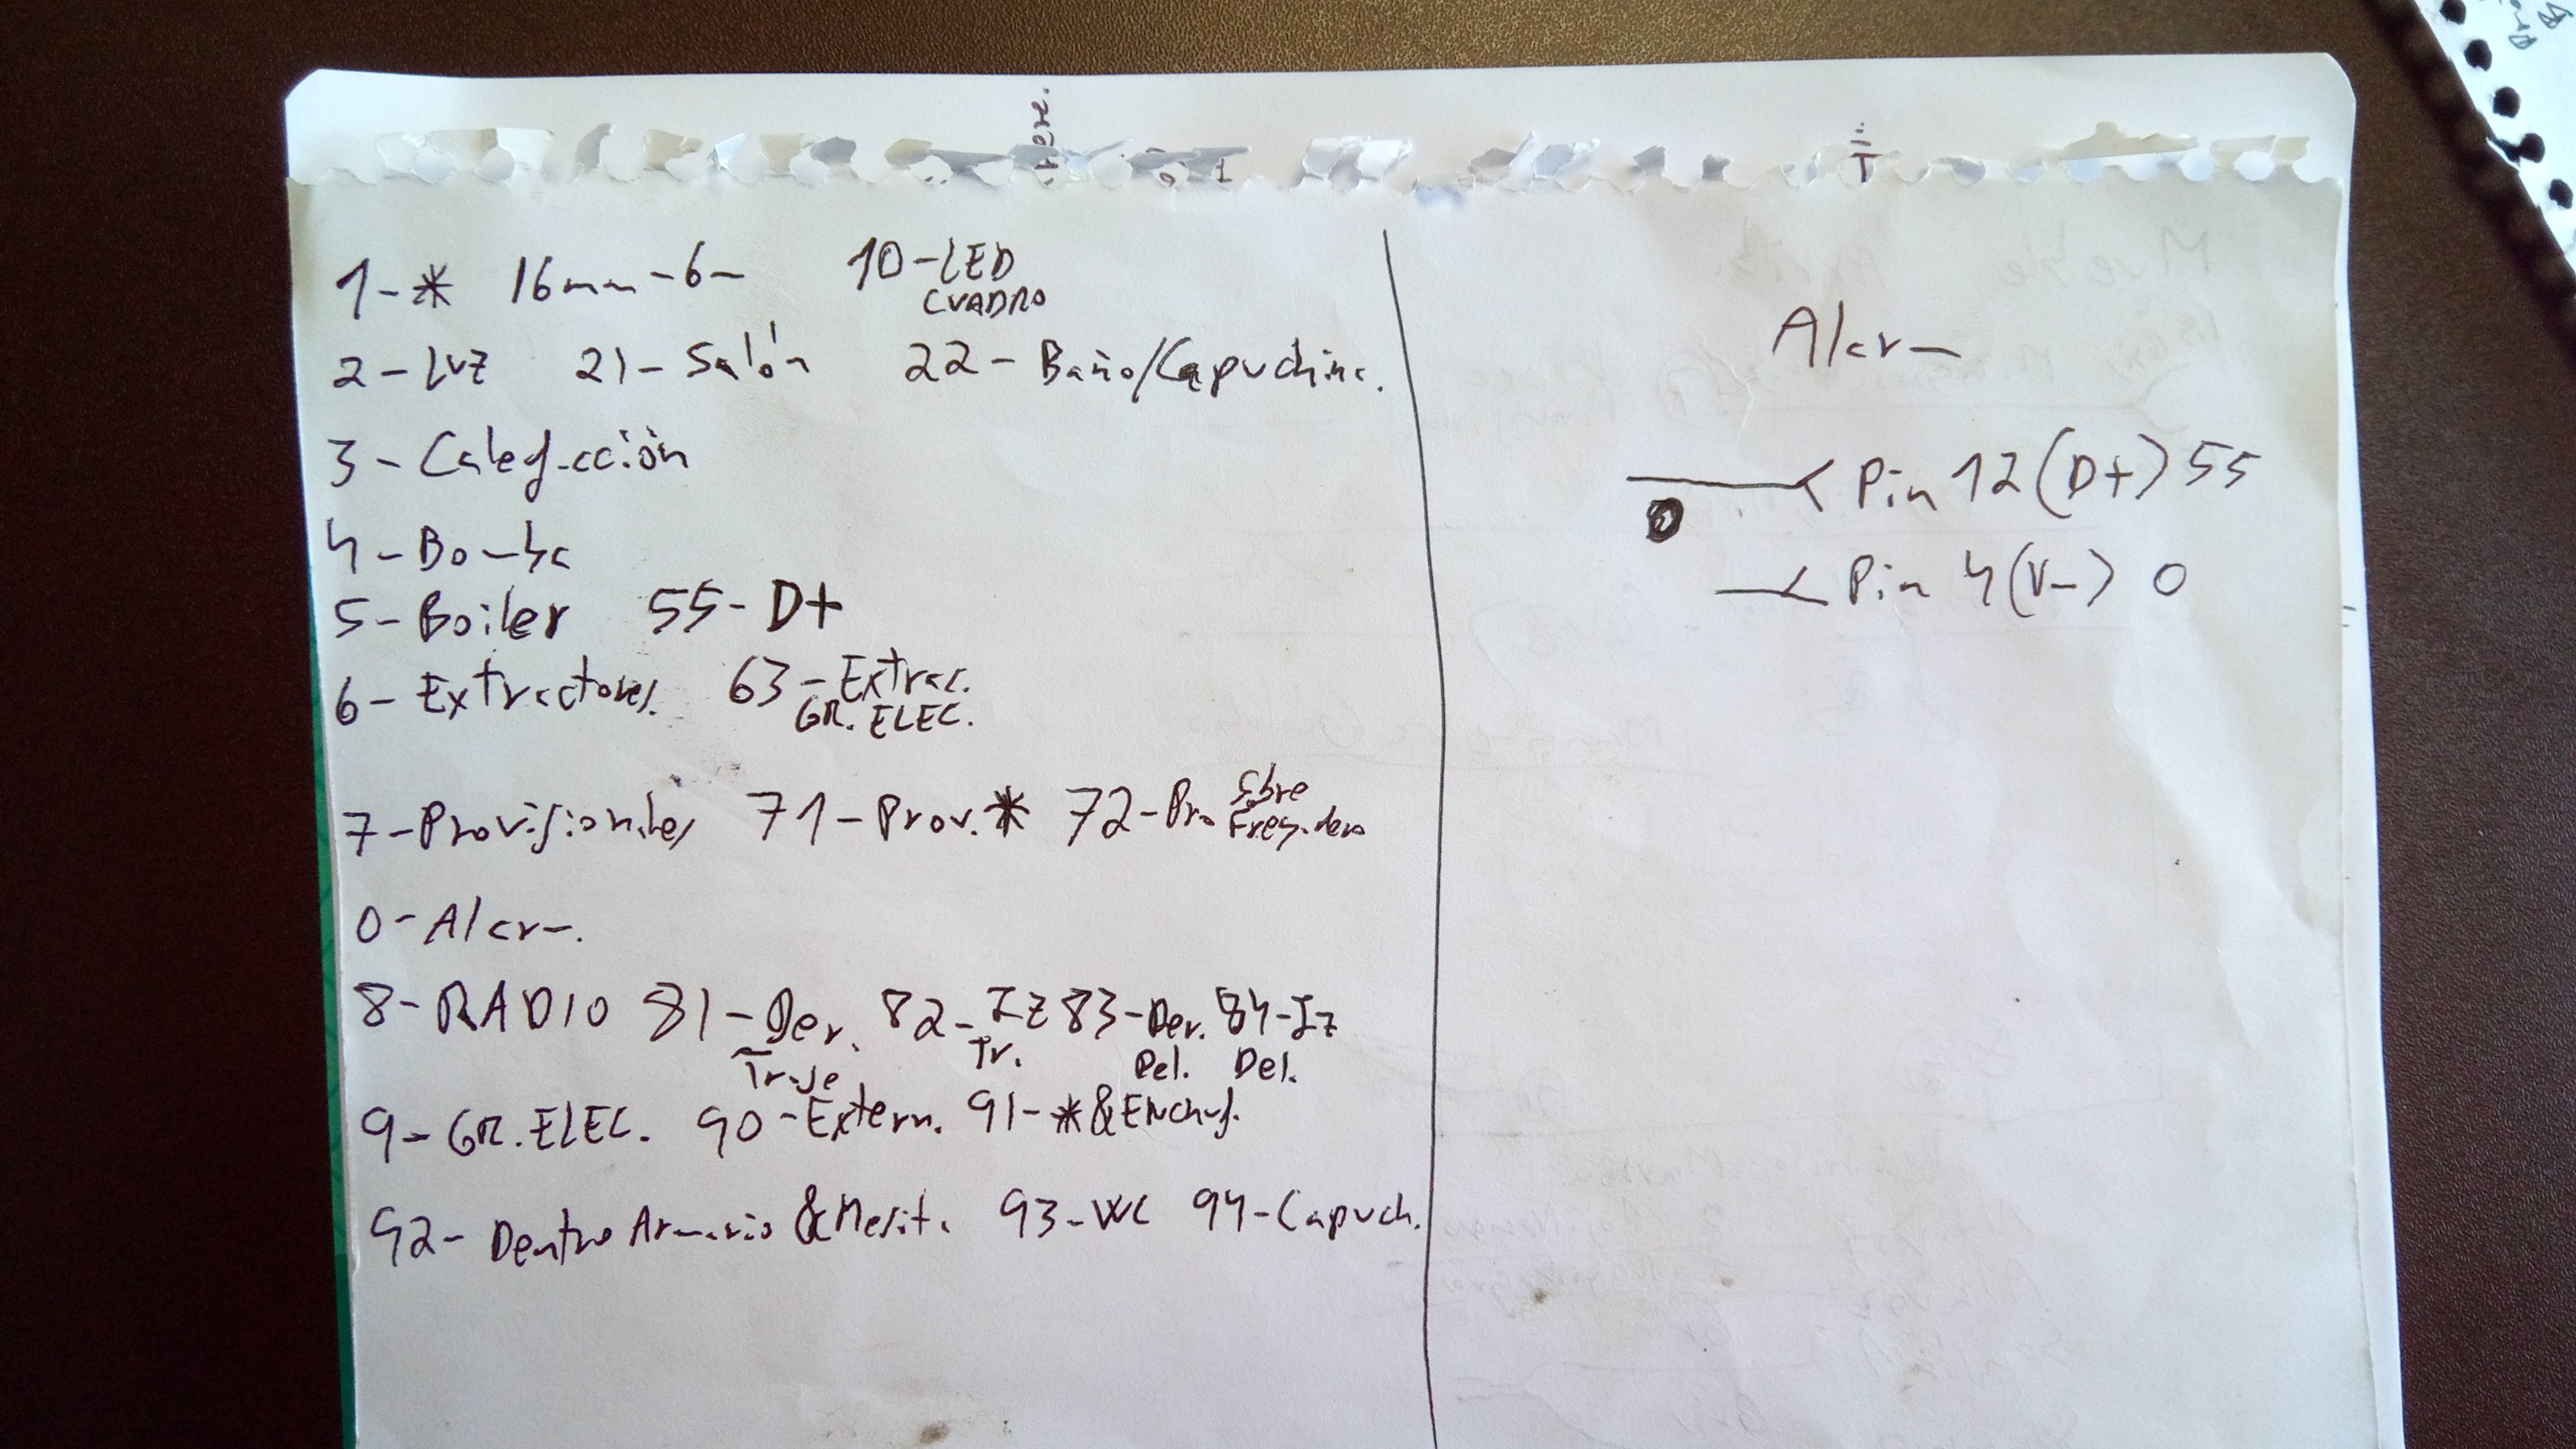 1-* 16mm-6- 10-LED
CUADRO
2-Luz 21-Salón 22-Baño/Capuchina.
3-Calefacción
4-Bomba
5-Boiler 55-D+
6-Extractores. 63-Extrac.
GR. ELEC.
7-Provisionales 71-Prov.* 72-Pro. Sobre
Fregadero
0-Alarm.
8-RADIO 81-Der. 82-Iz 83-Der. 84-Iz
Trase Tr. Del. Del.
9-GR.ELEC. 90-Extern. 91-*&ENchuf.
92-Dentro Armario &Mesita 93-WC 94-Capuch.
Alarm
Pin 12(D+) 55
0
Pin 4(V-) 0